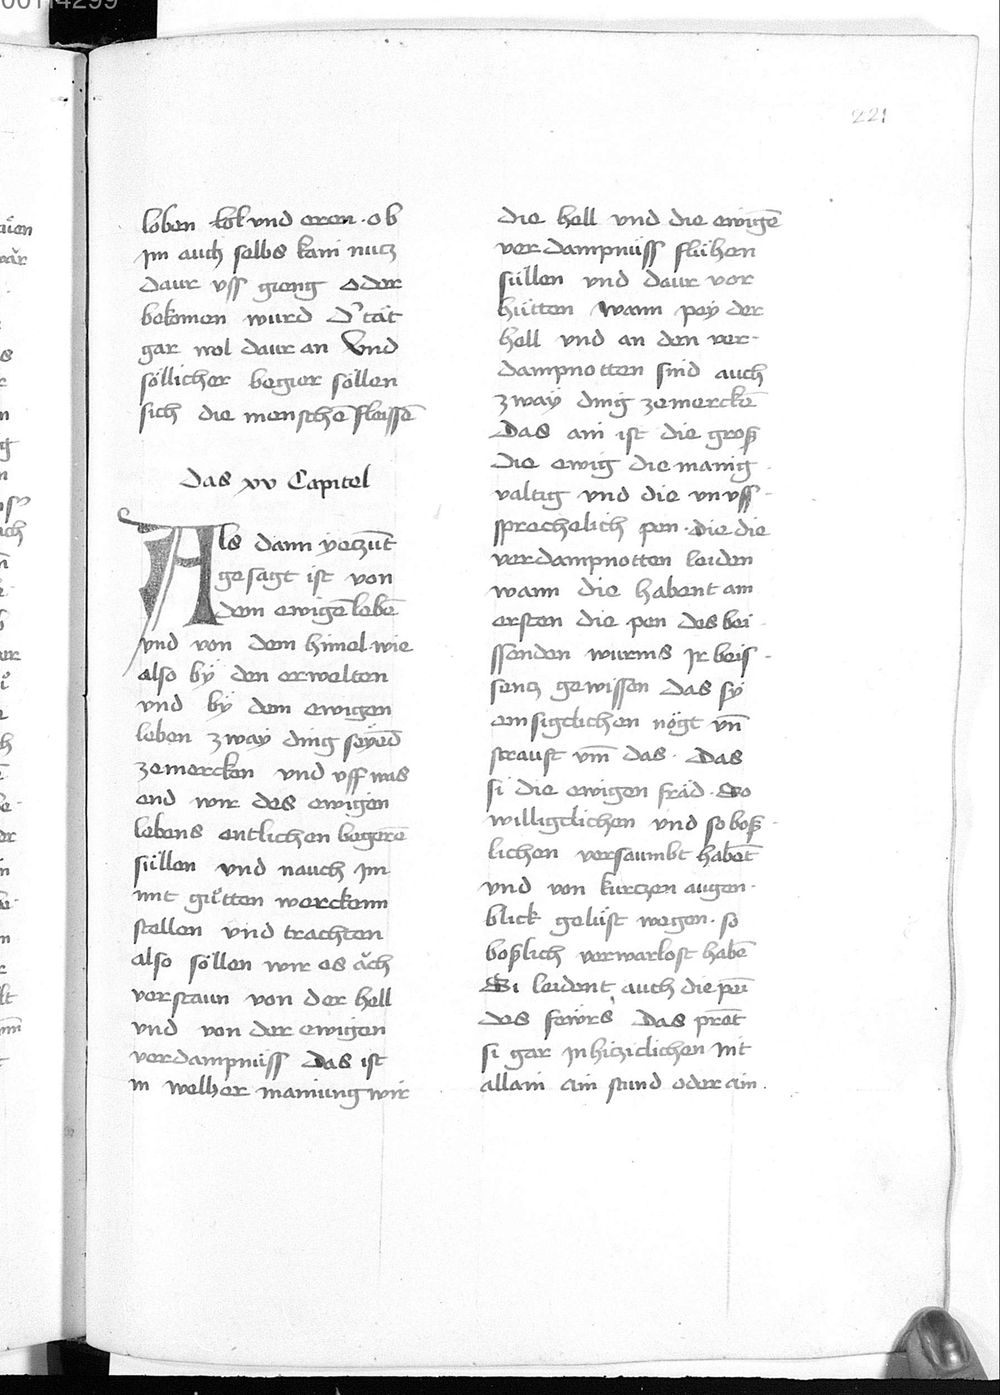 221
loben lob vnd eren · ob
jm auch selbs kain nucz
daur vss gieng oder
bekomen wurd d' tät
gar wol daur an Vnd
söllicher begier söllen
sich die menschē fleissē
das xv Capitel
Als dann yeczūt
gesagt ist von
dem ewigē lebē
vnd von dem himel wie
also bÿ den erwelten
vnd bÿ dem ewigen
leben zwaÿ ding seÿēd
zemercken vnd vff was
end wir des ewigen
lebens entlichen begerē
süllen vnd nauch jm
mit gůtten werckenn
stellen vnd trachten
also söllen wir es äch
verstaun von der hell
vnd von der ewigen
verdampnüss Das ist
in welher mainung wir
die hell vnd die ewigē
verdampnüss fliühen
süllen vnd daur vor
hütten Wann peÿ der
hell vnd an den ver-
dampnotten sind auch
zwaÿ ding zemerckē
Das ain ist die groß
die ewig die manig
valtig vnd die vnvss-
sprechelich pen · die die
verdampnotten leiden
wann die habent am
ersten die pen des bei
ssenden wurms jr beis-
sencz gewissen das sÿ
emsigclichen nögt vn̄
strauft vm̄ das · Das
si die ewigen fräd · So
willigclichen vnd so boß-
lichen versaumbt habēt
vnd von kurczen augen-
blick gelüst wegen · so
boßlich verwarlost habē
Si leident auch die pen
des fewrs Das prēt
si gar jnhicziclichen nit
allain ain stund oder ain